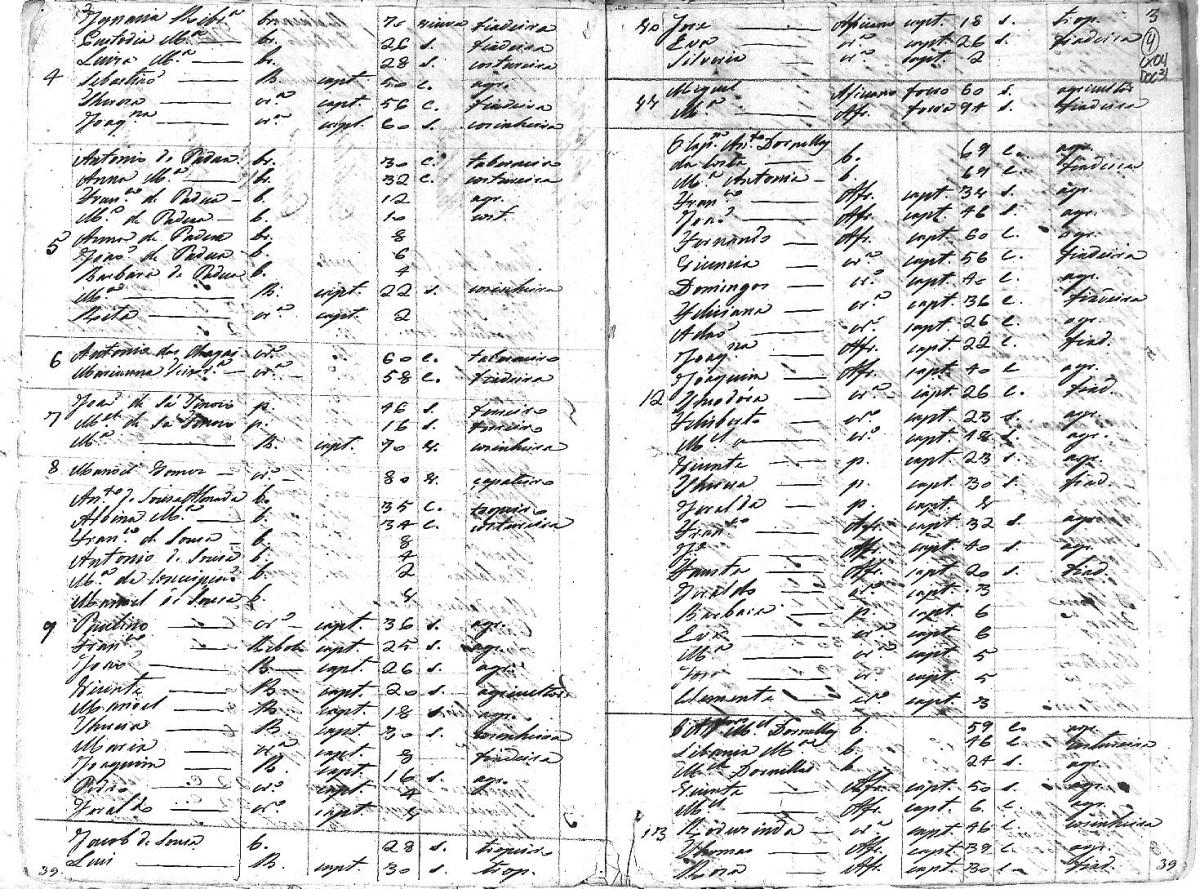 Ignacia Ribr.ª br. 70 viuva fiadeira
Custodia M.ª br. 26 s. fiadeira
Luiza M.ª br. 28 s. costureira
4 Sebastião B. capt. 50 c. agr.
Thereza cr.ª capt. 56 c. fiadeira
Joaq.na cr.ª capt. 60 s. cosinheira
Antonio de Padua br. 30 c. taberneiro
Anna M.ª br. 32 c. costureira
Fran.co de Padua b. 12 agr.
M.ª de Padua b. 10 cost.
5 Anna de Padua br. 8
João de Padua b. 6
Barbara de Padua b. 4
M.ª B. capt. 22 s. cosinheira
Rita cr.ª capt. 2
6 Antonio das Chagas cr.º 60 c. taberneiro
Marianna cr.ª 58 c. fiadeira
7 João de Sá p. 46 s. ferreiro
M.el de Sá p. 16 s. ferreiro
M.ª B. capt. 70 cosinheira
8 Manoel Gomes cr.º 80 sapateiro
Ant.º de Sousa Almada b. 35 c. tropeiro
Albina M.ª b. 34 c. costureira
Fran.co de Sousa b. 8
Antonio de Sousa b. 4
M.ª da Conceição b. 2
Manoel de Sousa b.
9 Paulino cr.º capt. 36 s. agr.
Fran.co Rebolo capt. 25 s. agr.
João B. capt. 26 s. agr.
Vicente B. capt. 20 s. agricultor
Manoel B. capt. 18 s. agr.
Thereza B. capt. 30 s. cosinheira
Maria cr.ª capt. 8 fiadeira
Joaquim B. capt. 16 s. agr.
Pedro cr.º capt. 4
Geraldo cr.º capt.
Jacob de Sousa b. 28 s. tropeiro
Luis B. capt. 30 s. trop.
39
3
4
CX04
DOC31
10 Jose Africano capt. 18 s. trop.
Eva cr.ª capt. 26 s. fiadeira
Silveria cr.ª capt. 2
11 Miguel Africano forro 60 s. agricultor
M.ª Afr. forra 94 s. fiadeira
O Cap.m An.to Dornellas
da Costa b. 69 c. agr.
M.ª Antonia b. 69 c. fiadeira
Fran.co Afr. capt. 34 s. agr.
João Afr. capt. 46 s. agr.
Fernando Afr. capt. 60 c. agr.
cr.ª capt. 56 c. fiadeira
Domingos cr.º capt. 40 c. agr.
Feliciana cr.ª capt. 36 c. fiadeira
Adão cr.º capt. 26 c. agr.
Joaq.na Afr. capt. 22 c. fiad.
Joaquim Afr. capt. 40 c. agr.
12 Theodora cr.ª capt. 26 c. fiad.
Felisberto cr.º capt. 23 s. agr.
M.el cr.º capt. 18 s. agr.
Vicente p. capt. 23 s. agr.
Thereza p. capt. 30 s. fiad.
Geralda p. capt.
Fran.co Afr. capt. 32 s. agr.
Je. Afr. capt. 40 s. agr.
Fausta Afr. capt. 20 s. fiad.
Geraldo cr.º capt. 3
Barbara p. capt. 6
Eva cr.ª capt. 6
M.ª cr.ª capt. 5
cr.º capt. 5
Clemente cr.º capt. 3
M.el Dornellas b. 59 c. agr.
Libania M.ª b. 46 c. costureira
M.el Dornellas b. 24 s. agr.
Vicente Afr. capt. 50 s. agr.
M.el Afr. capt. 6 c. agr.
13 Rodozinda cr.ª capt. 46 c. cosinheira
Thomas Afr. capt. 39 c. agr.
Rosa Afr. capt. 30 s. fiad.
39